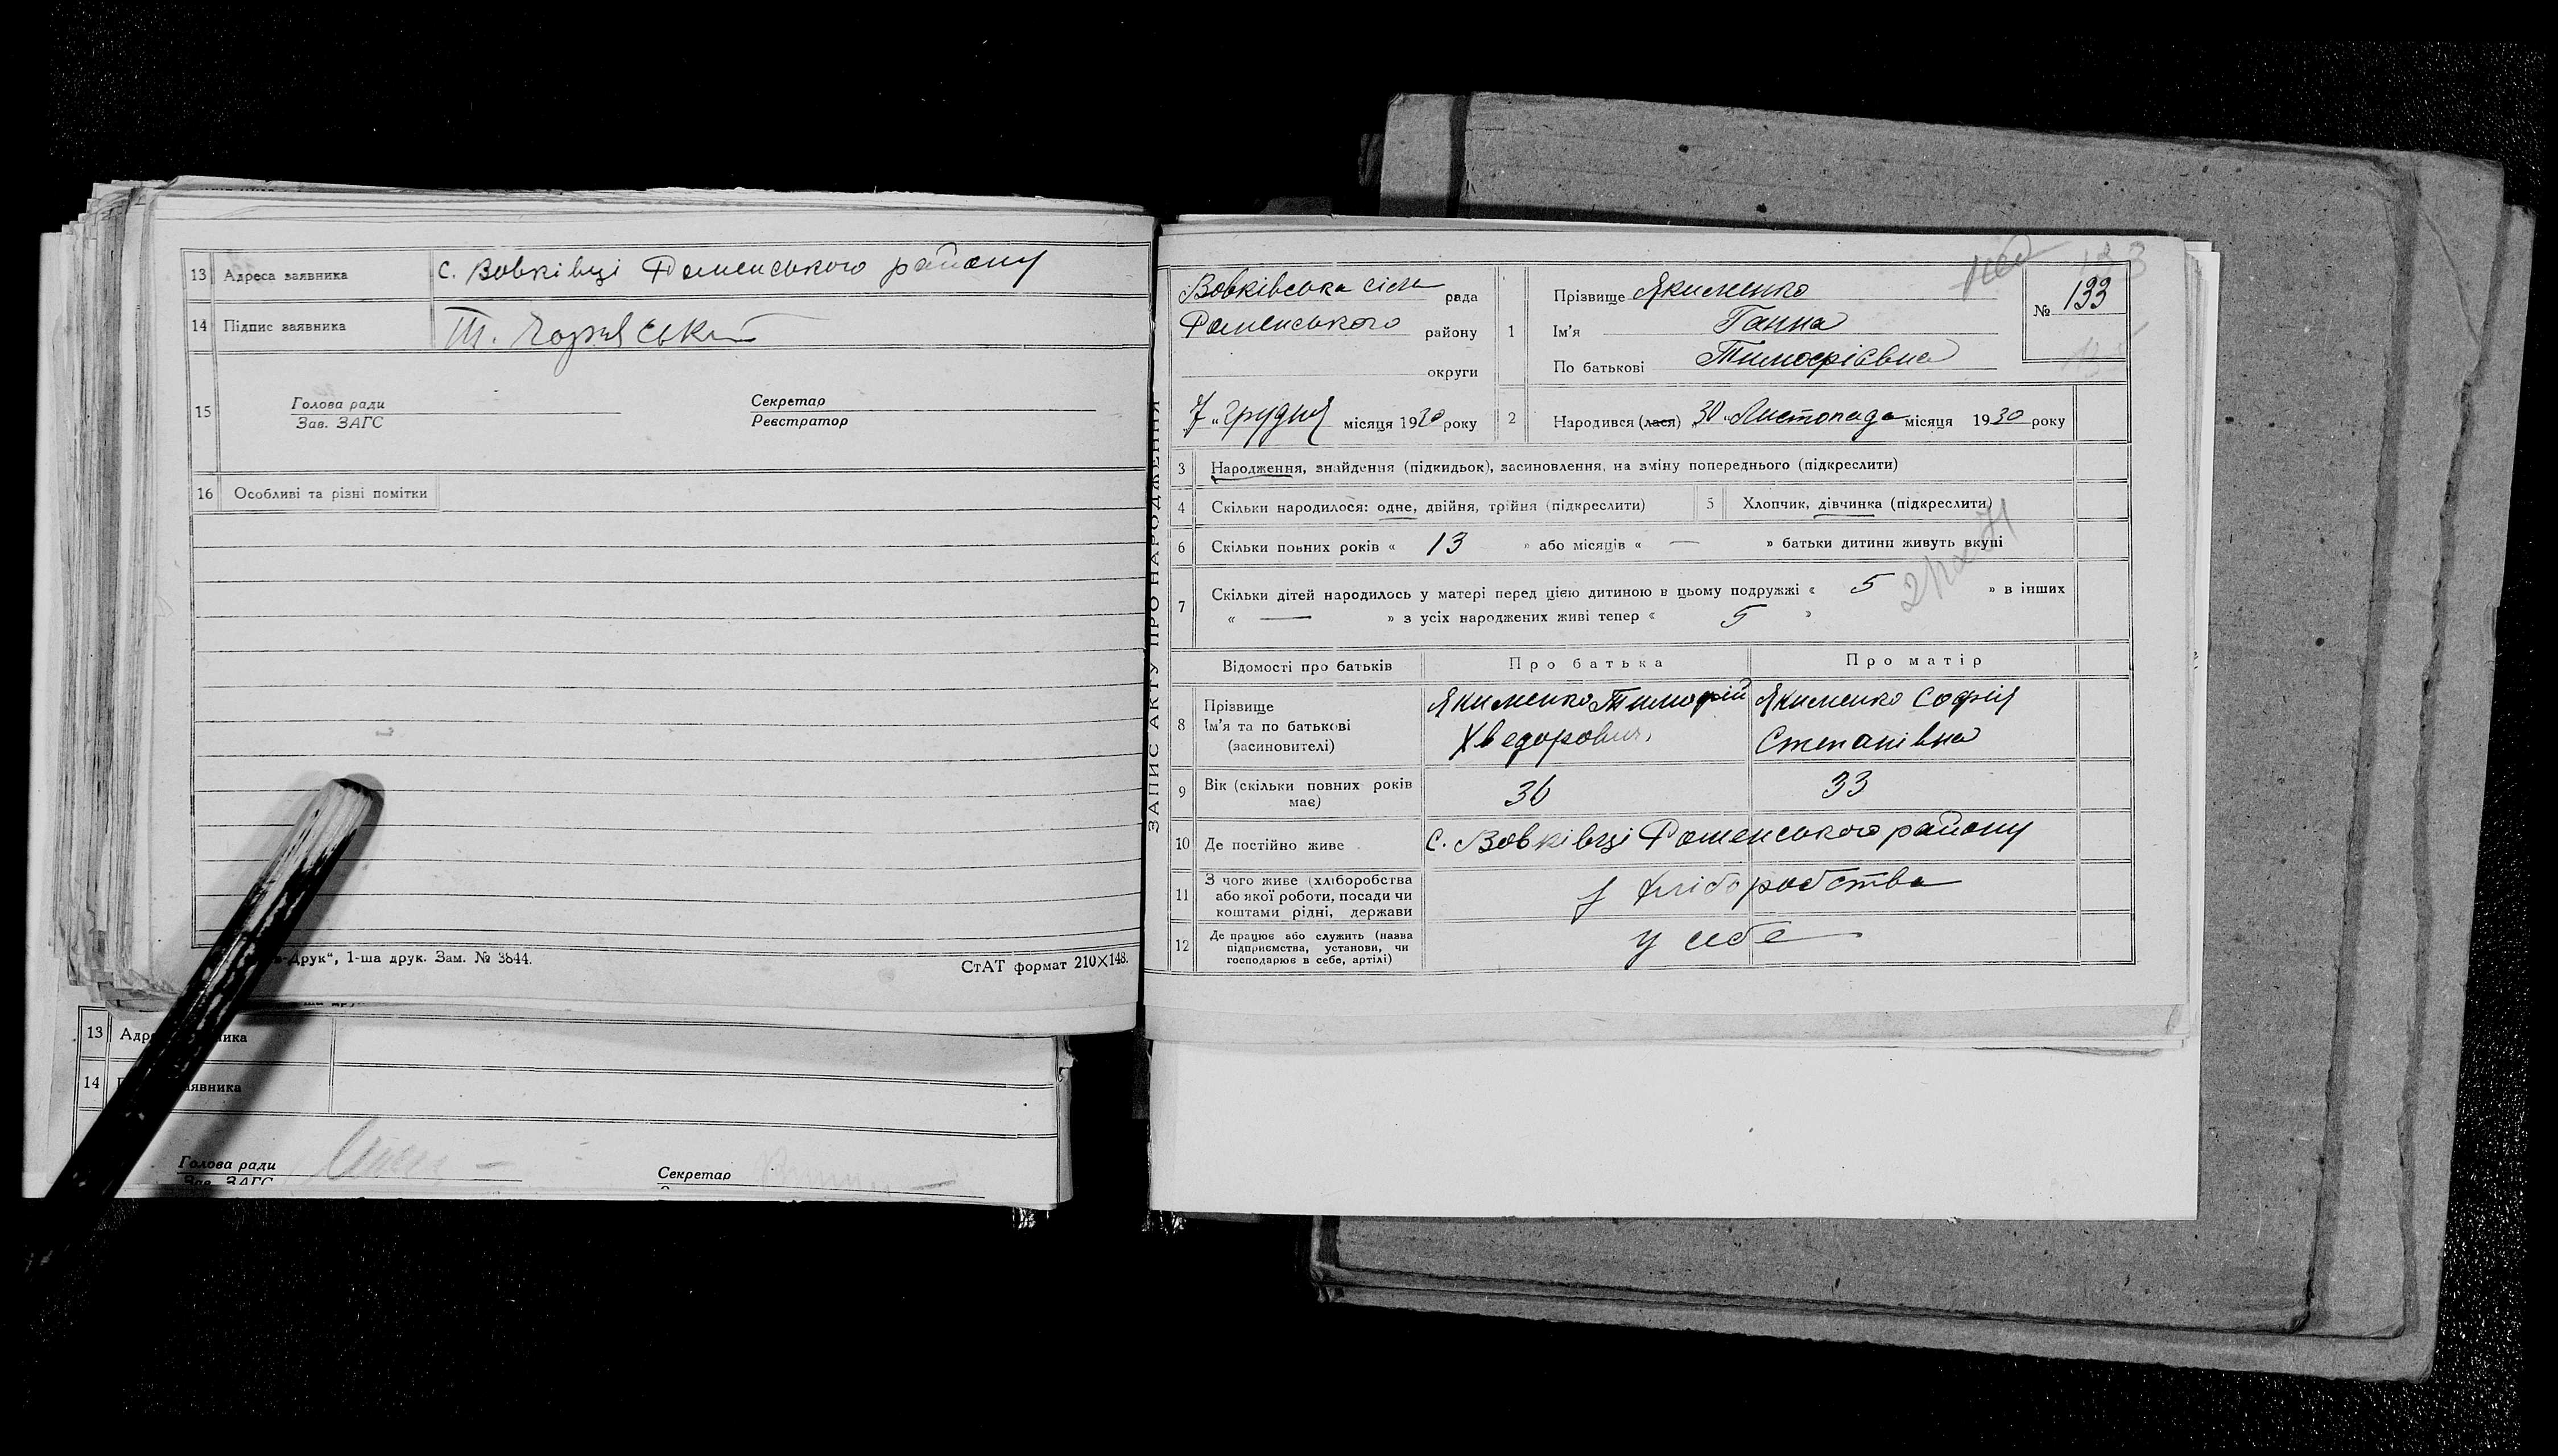 13 Адреса заявника с. Вовківці Роменського району
14 Підпис заявника
15
Голова ради
Зав. ЗАГС
Секретар
Реєстратор
16 Особливі та різні помітки
-Друк", 1-ша друк. Зам. № 3844.
СтАТ формат 210×148.
13
14
Голова ради
Зав. ЗАГС
Секретар
ЗАПИС АКТУ ПРО НАРОДЖЕННЯ
Вовківська сіль рада
Роменського району
округи
7 „ грудня місяця 1930 року
133
№ 133
1
Прізвище Якименко
Ім'я Ганна
По батькові Тимофіївна
2 Народився (лася) 30 „ Листопада місяця 1930 року
3 Народження, знайдення (підкидьок), засиновлення, на зміну попереднього (підкреслити)
4 Скільки народилося: одне, двійня, трійня (підкреслити)
5 Хлопчик, дівчинка (підкреслити)
6 Скільки повних років « 13 » або місяців « — » батьки дитини живуть вкупі
7 Скільки дітей народилось у матері перед цією дитиною в цьому подружжі « 5 » в інших
« — » з усіх народжених живі тепер « 5 »
Відомості про батьків Про батька Про матір
8 Прізвище Ім'я та по батькові (засиновителі)
Якименко Тимофій
Хведорович
Якименко Софія
Степанівна
9 Вік (скільки повних років має) 36 33
10 Де постійно живе с. Вовківці Роменського району
11 З чого живе (хліборобства
або якої роботи, посади чи
коштами рідні, держави
з хліборобства
12 Де працює або служить (назва
підприємства, установи, чи
господарює в себе, артілі)
у себе